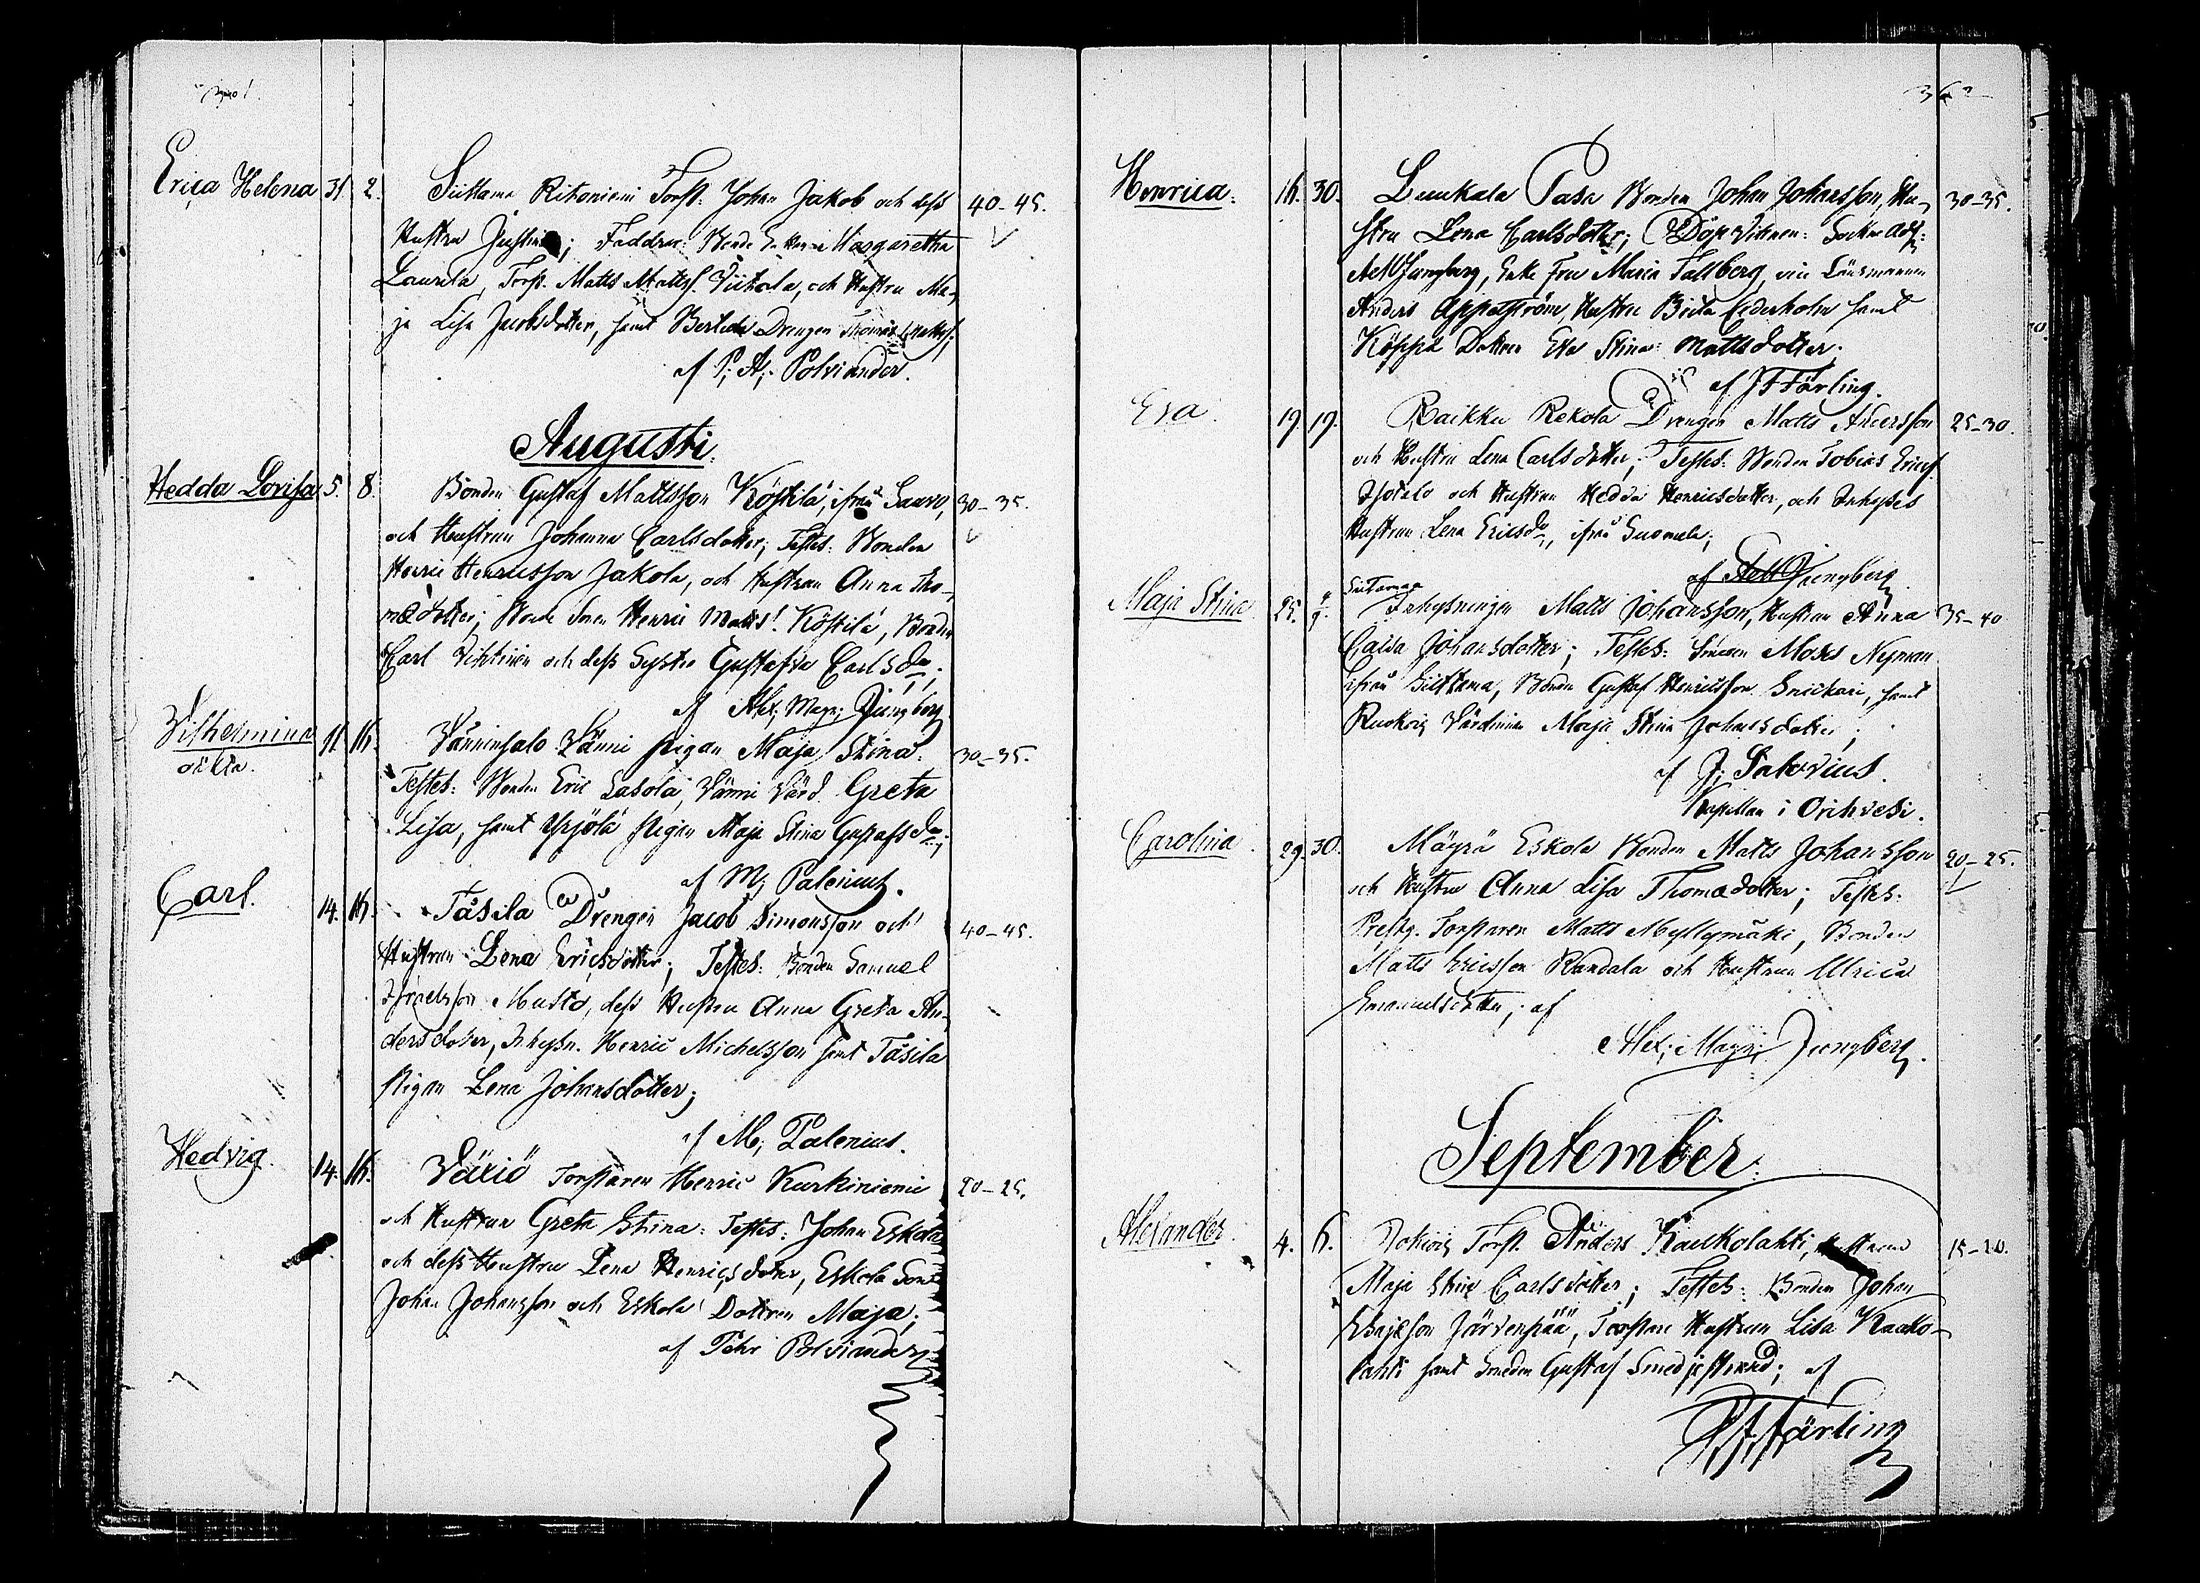 Erica Helena 31. 2. Siittama Ritoniemi Torp. Johan Jakob och dess 40-45.
Hustru Justina; Faddrar: Margaretha
Laurila, Torp. Matts Mattss. Viitala, och Hustru Ma-
ja Lisa Jacobsdotter, samt Drengen Thomas Mattss;
af P; A; Polviander.
Augusti.
Hedda Lovisa 5. 8. Bonden Gustaf Mattsson Köstilä, ifrån Sauvo, 30-35.
och Hustrun Johanna Carlsdotter; Testes: Bonden
Henric Henricsson Jakola, och Hustrun Anna Tho-
mædotter; Bonde Sonen Henric Matts: Köstilä, Bonden
Carl och dess Syster Gustafva Carlsdr;
af Alex; Magn; Ljungberg
Vilhelmina 11 16. Vänninsalo Vänni pigan Maja Stina. 30-35.
oäkta.
Testes: Bonden Eric Sasola, Vänni Värd. Greta
Lisa, samt Yrjölä pigan Maja Stina Gustafsdr;
af M; Palenius.
Carl. 14. 16. Täsilä Drengen Jacob Simonsson och 40-45.
Hustrun Lena Ericsdotter; Testes: Bonden Samuel
Israelsson Musto, dess Hustru Anna Greta An-
dersdotter, Inhysn. Henric Michelsson samt Täsilä
pigan Lena Johansdotter;
af M; Palenius.
Hedvig. 14. 16. Växiö Torparen Henric Kurkiniemi 20-25.
och Hustrun Greta Stina: Testes: Johan Eskola
och dess Hustru Lena Henricsdotter, Eskola Son
Johan Johansson och Eskola Dottren Maja;
af Pehr Polviander
Henrica. 16. 30. Pasa Bonden Johan Johansson, Hu- 30-35.
stru Lena Carlsdotter; Döpvittnen: Sockne Adj:
A M Ljungberg, Enke Fru Maria Fallberg, vice Länsmannen
Anders Appelström, Hustru Brita Cederholm samt
Köppä Dottren Eva Stina Mattsdotter.
af J F Färling.
Eva. 19 19. Raikku Rekola Drengen Matts Andersson 25-30.
och Hustru Lena Carlsdotter; Testes: Bonden Tobias Ericss.
Isotalo och Hustrun Hedda Henricsdotter, och Inhyses
Hustrun Lena Ericsdr, ifrån Suomela;
af Ljungberg
Maja Stina 25. Siitama Inhysningen Matts Johansson, Hustrun Anna 35-40
Caisa Johansdotter; Testes: Smeden Moses Nyman
ifrån Siittama, Bonden Gustaf Henricsson Snickari, samt
Ruokois Värdinnan Maja Stina Johansdotter;
af J; Salovius.
Kapellan i Orihvesi.
Carolina. 29. 30. Mäyrä Eskola Bonden Matts Johansson 20-25.
och Hustru Anna Lisa Thomædotter; Testes:
Prestg. Torparen Matts Myllymäki, Bonden
Matts Ericsson Randala och Hustrun Ulrica
Emanuelsdotter; af
Alex; Magn; Ljungberg.
September.
Alexander. 4. 6. Torp. Anders Kaukolahti, Hustrun 15-20.
Maja Stina Carlsdotter; Testes: Bonden Johan
Järvenpää, Torpare Hustrun Lisa Kauko-
lahti samt Smeden Gustaf Smedjestrand; af
J F Färling